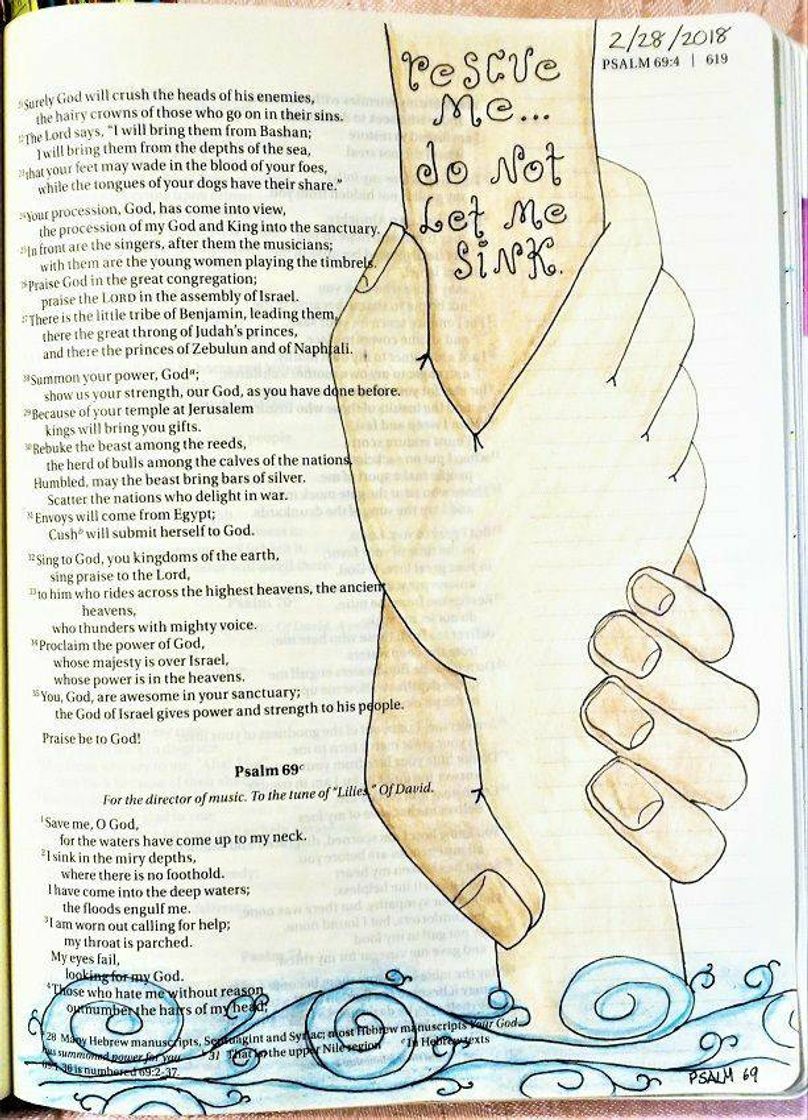 2/28/2018
PSALM 69:4 | 619
rescue
Me...
do Not
Let Me
SiNK.
21Surely God will crush the heads of his enemies,
the hairy crowns of those who go on in their sins.
22The Lord says, "I will bring them from Bashan;
I will bring them from the depths of the sea,
23that your feet may wade in the blood of your foes,
while the tongues of your dogs have their share."
24Your procession, God, has come into view,
the procession of my God and King into the sanctuary.
25In front are the singers, after them the musicians;
with them are the young women playing the timbrels.
26Praise God in the great congregation;
praise the LORD in the assembly of Israel.
27There is the little tribe of Benjamin, leading them,
there the great throng of Judah's princes,
and there the princes of Zebulun and of Naphtali.
28Summon your power, Goda;
show us your strength, our God, as you have done before.
29Because of your temple at Jerusalem
kings will bring you gifts.
30Rebuke the beast among the reeds,
the herd of bulls among the calves of the nations.
Humbled, may the beast bring bars of silver.
Scatter the nations who delight in war.
31Envoys will come from Egypt;
Cushb will submit herself to God.
32Sing to God, you kingdoms of the earth,
sing praise to the Lord,
33to him who rides across the highest heavens, the ancient
heavens,
who thunders with mighty voice.
34Proclaim the power of God,
whose majesty is over Israel,
whose power is in the heavens.
35You, God, are awesome in your sanctuary;
the God of Israel gives power and strength to his people.
Praise be to God!
Psalm 69c
For the director of music. To the tune of "Lilies." Of David.
1Save me, O God,
for the waters have come up to my neck.
2I sink in the miry depths,
where there is no foothold.
I have come into the deep waters;
the floods engulf me.
3I am worn out calling for help;
my throat is parched.
My eyes fail,
looking for my God.
4Those who hate me without reason
outnumber the hairs of my head;
a 28 Many Hebrew manuscripts, Septuagint and Syriac; most Hebrew manuscripts Your God
has summoned power for you b 31 That is, the upper Nile region c In Hebrew texts
69:1-36 is numbered 69:2-37.
PSALM 69